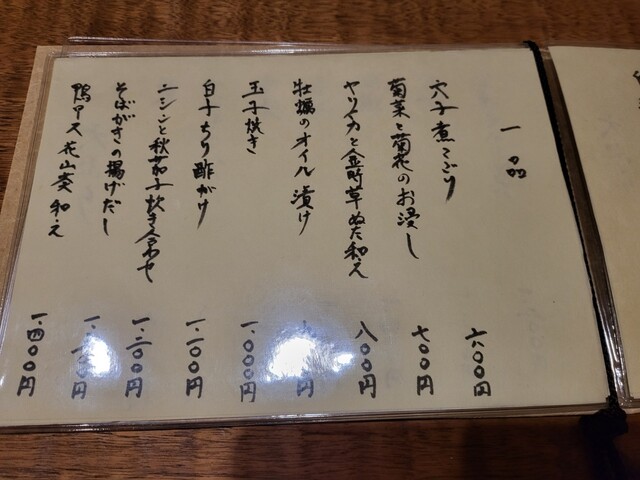 一品
穴子煮こごり 六〇〇円
菊菜と菊花のお浸し 七〇〇円
ヤリイカと金時草ぬた和え 八〇〇円
牡蠣のオイル漬け 円
玉子焼き 一.〇〇〇円
白子ちり酢がけ 一.一〇〇円
ニシンと秋茄子炊き合わせ 一.二〇〇円
そばがきの揚げだし 一. 〇円
鴨ロース 花山葵和え 一.四〇〇円